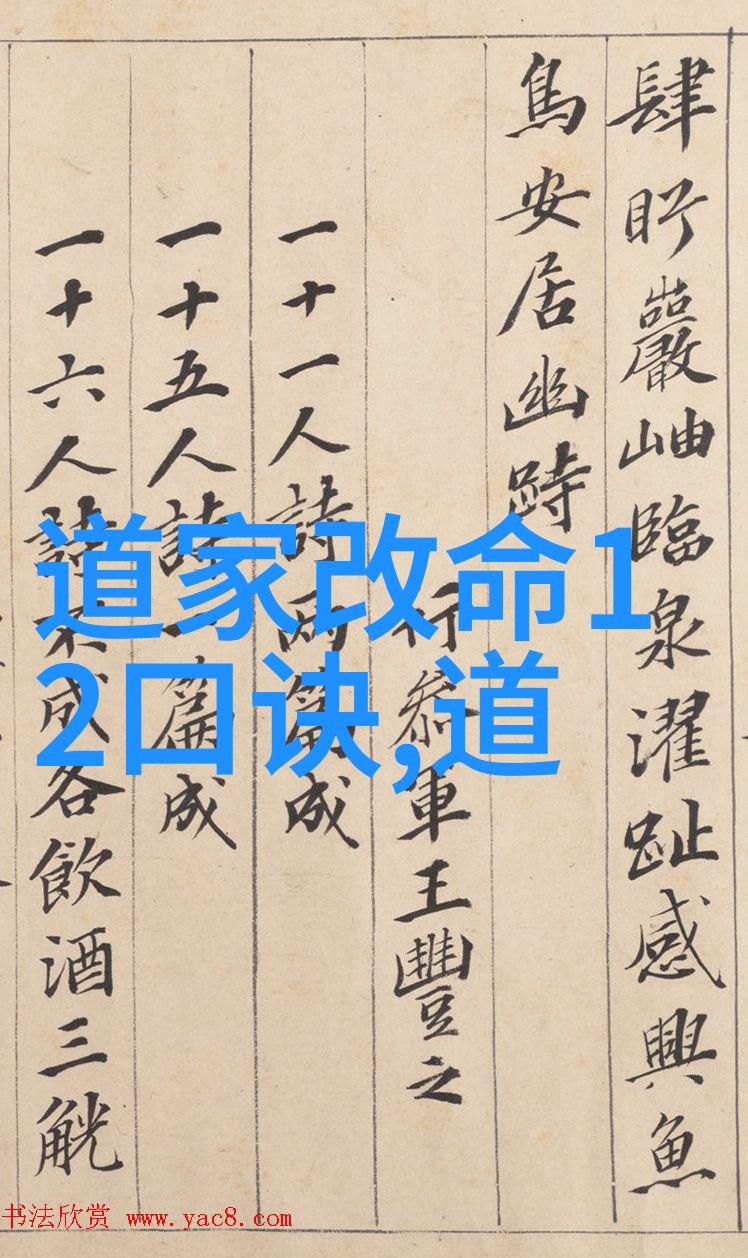 肆眄巖岫臨泉濯趾感興魚
鳥安居幽跱
行參軍王豐之
一十一人詩兩篇成
一十五人詩一篇成
一十六人詩不成各飲酒三觥
道家改命1
2口诀,道
书法欣赏 www.yac8.com